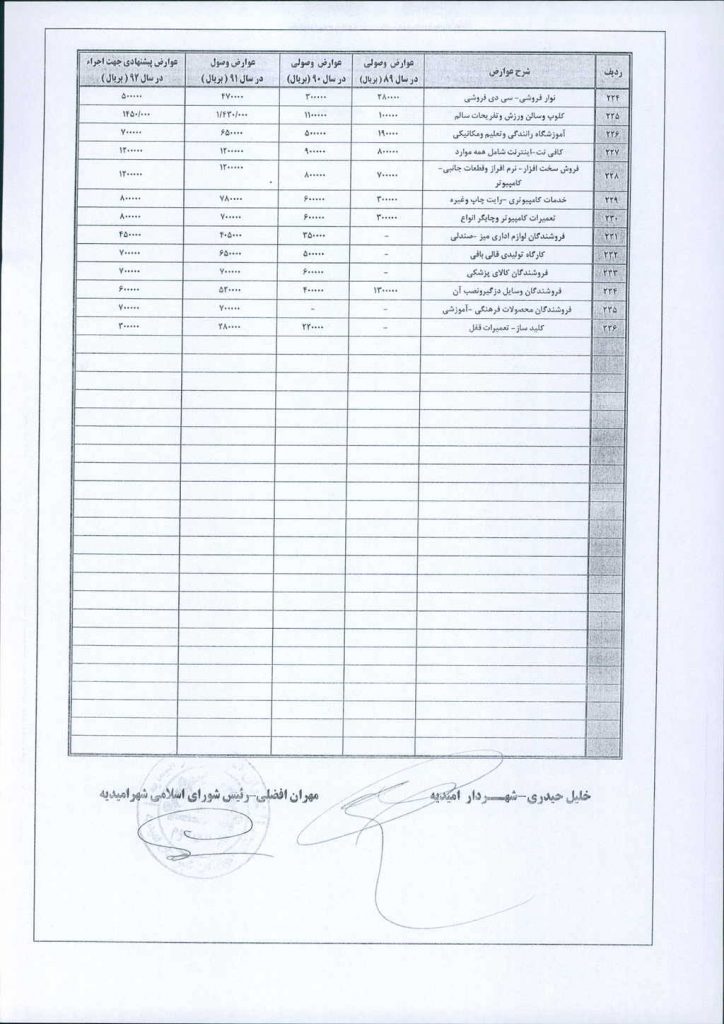 ردیف شرح عوارض عوارض وصولی در سال ۸۹ (بریال) عوارض وصولی در سال ۹۰ (بریال) عوارض وصول در سال ۹۱ (بریال) عوارض پیشنهادی جهت اجراء در سال ۹۲ (بریال)
۲۲۴ نوار فروشی- سی دی فروشی ۲۸۰۰۰۰ ۳۰۰۰۰۰ ۴۷۰۰۰۰ ۵۰۰۰۰۰
۲۲۵ کلوپ وسائل ورزش وتفریحات سالم ۱۰۰۰۰۰ ۱۱۰۰۰۰۰ ۱/۴۳۰/۰۰۰ ۱۴۵۰/۰۰۰
۲۲۶ آموزشگاه رانندگی وتعلیم ومکانیکی ۱۹۰۰۰۰ ۵۰۰۰۰۰ ۶۵۰۰۰۰ ۷۰۰۰۰۰
۲۲۷ کافی نت-اینترنت شامل همه موارد ۸۰۰۰۰۰ ۹۰۰۰۰۰ ۱۲۰۰۰۰۰ ۱۲۰۰۰۰۰
۲۲۸ فروش سخت افزار- نرم افراز وقطعات جانبی- ۷۰۰۰۰۰ ۸۰۰۰۰۰ ۱۲۰۰۰۰۰ ۱۲۰۰۰۰۰
کامپیوتر
۲۲۹ خدمات کامپیوتری -رایت چاپ وغیره ۳۰۰۰۰۰ ۶۰۰۰۰۰ ۷۸۰۰۰۰ ۸۰۰۰۰۰
۲۳۰ تعمیرات کامپیوتر وچاپگر انواع ۳۰۰۰۰۰ ۶۰۰۰۰۰ ۷۰۰۰۰۰ ۸۰۰۰۰۰
۲۳۱ فروشندگان لوازم اداری میز -صندلی - ۳۵۰۰۰۰ ۴۰۵۰۰۰ ۴۵۰۰۰۰
۲۳۲ کارگاه تولیدی قالی بافی - ۵۰۰۰۰۰ ۶۵۰۰۰۰ ۷۰۰۰۰۰
۲۳۳ فروشندگان کالای پزشکی - ۶۰۰۰۰۰ ۷۰۰۰۰۰ ۷۰۰۰۰۰
۲۳۴ فروشندگان وسایل دزگیرونصب آن ۱۳۰۰۰۰۰ ۴۰۰۰۰۰ ۵۲۰۰۰۰ ۶۰۰۰۰۰
۲۳۵ فروشندگان محصولات فرهنگی -آموزشی - - ۷۰۰۰۰۰ ۷۰۰۰۰۰
۲۳۶ کلید ساز- تعمیرات قفل - ۲۲۰۰۰۰ ۲۸۰۰۰۰ ۳۰۰۰۰۰
خلیل حیدری-شهردار امیدیه مهران افضلی-رئیس شورای اسلامی شهرامیدیه